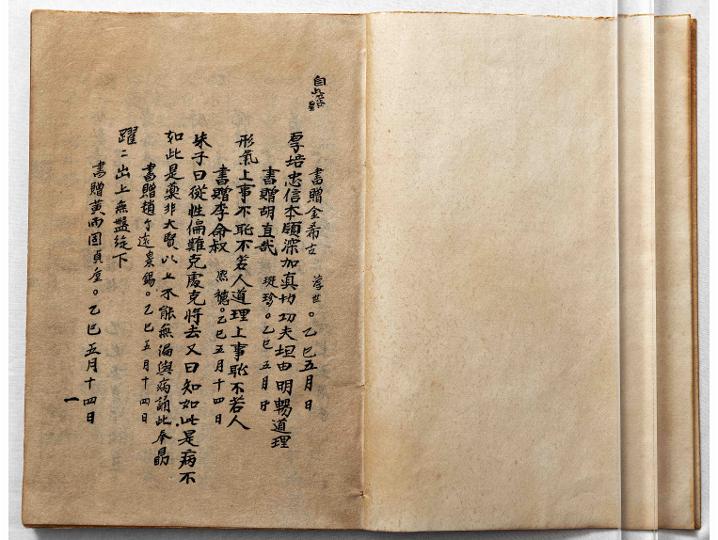 書贈金希古 濟世。乙巳五月日
厚培忠信本領深加真切功夫坦由明暢道理
書贈胡直哉 班珍。乙巳五月日
形氣上事不恥不若人道理上事恥不若人
書贈李命叔 熙穗。乙巳五月十四日
朱子曰從性偏難克處克將去又曰知如此是病不
如此是藥非大賢以上不能無偏與病誦此奉勗
書贈趙 遠 錫。乙巳五月十四日
躍〻出上無盤旋下
書贈黃雨 貞 。乙巳五月十四日
一